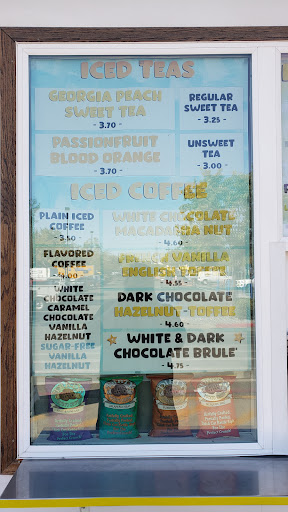 ICED TEAS
GEORGIA PEACH
SWEET TEA
- 3.70 -
REGULAR
SWEET TEA
- 3.25 -
PASSIONFRUIT
BLOOD ORANGE
- 3.70 -
UNSWEET
TEA
- 3.00 -
ICED COFFEE
PLAIN ICED
COFFEE
- 3.50 -
FLAVORED
COFFEE
- 4.00 -
WHITE
CHOCOLATE
CARAMEL
CHOCOLATE
VANILLA
HAZELNUT
SUGAR-FREE
VANILLA
HAZELNUT
WHITE CHOCOLATE
MACADAMIA NUT
- 4.60 -
FRENCH VANILLA
ENGLISH TOFFEE
- 4.55 -
DARK CHOCOLATE
HAZELNUT-TOFFEE
- 4.60 -
WHITE & DARK
CHOCOLATE BRULE'
- 4.75 -